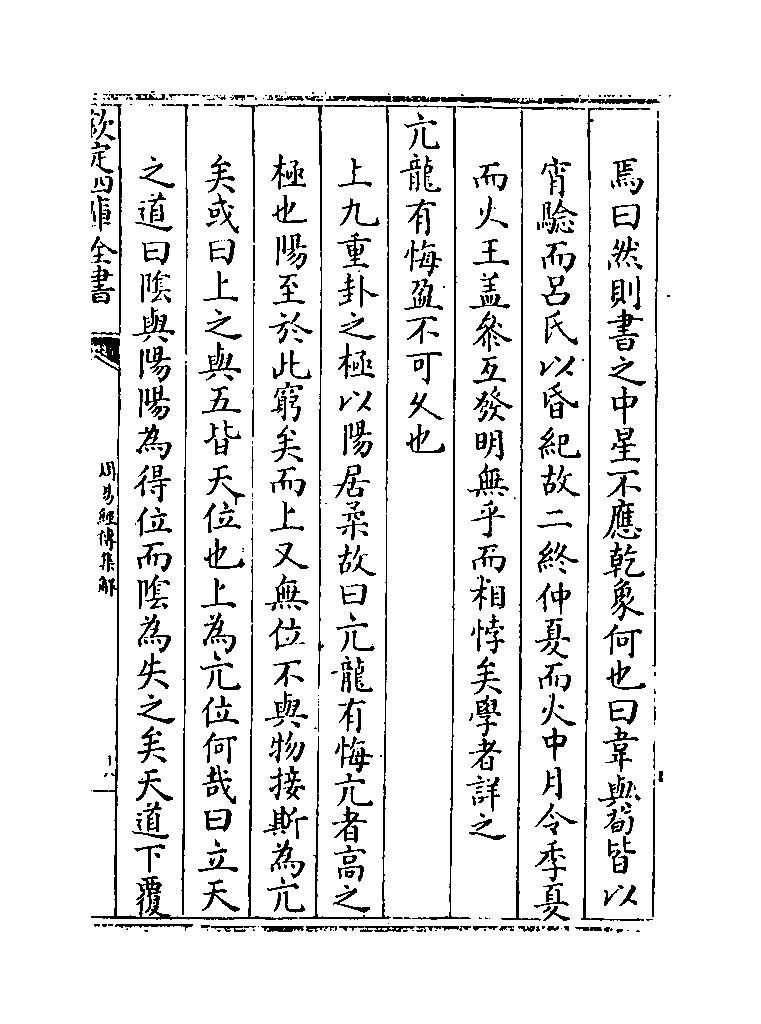 焉曰然則書之中星不應乾象何也曰韋與茍皆以
宵驗而呂氏以昏紀故二終仲夏而火中月令季夏
而火王盖叅互發明無乎而相悖矣學者詳之
亢龍有悔盈不可久也
上九重卦之極以陽居柔故曰亢龍有悔亢者高之
極也陽至於此窮矣而上又無位不與物接斯為亢
矣或曰上之與五皆天位也上為亢位何哉曰立天
之道曰陰與陽陽為得位而陰為失之矣天道下覆
欽定四庫全書
周易經傳集解
十八